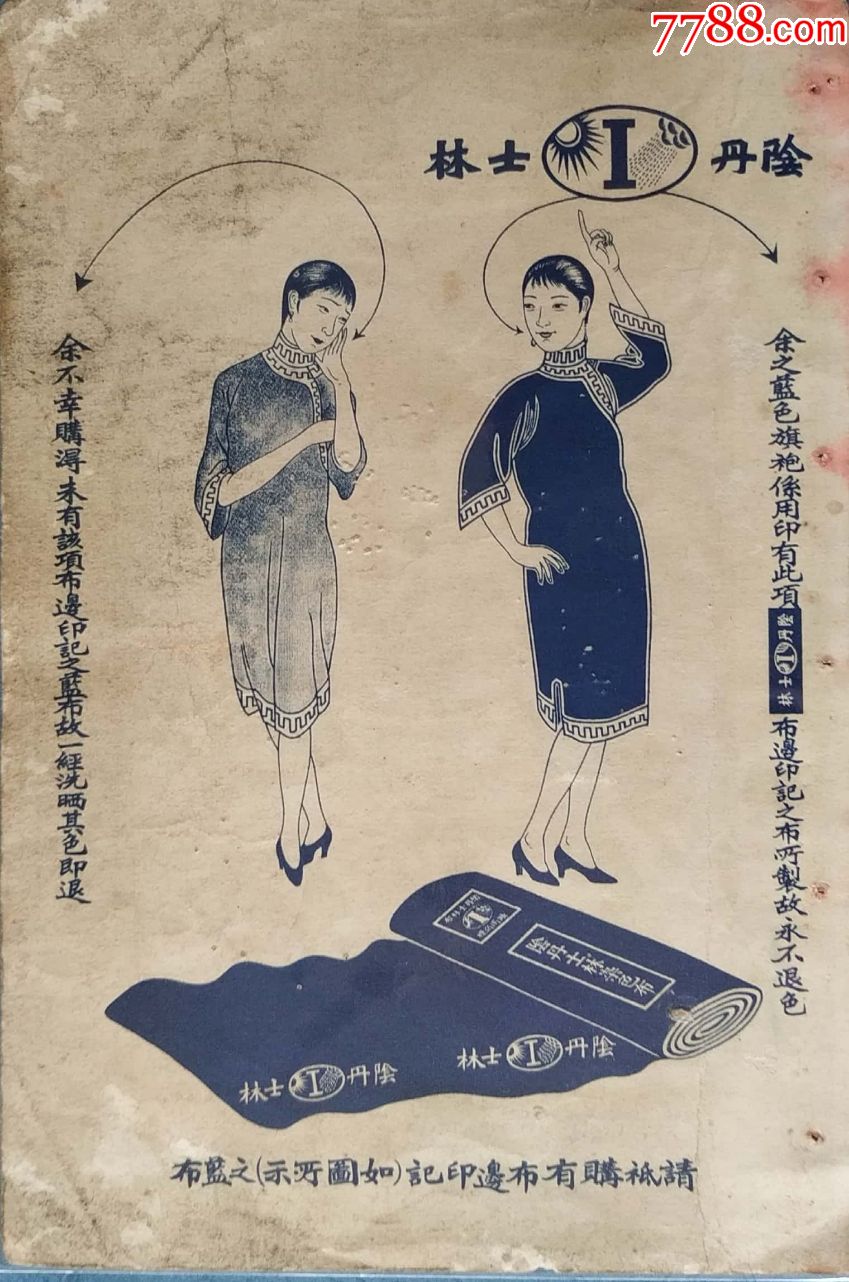 7788.com
陰丹 I 士林
余之藍色旗袍係用印有此項陰丹 I 士林布邊印記之布所製故永不退色
余不幸購得未有該項布邊印記之藍布故一經洗晒其色即退
陰丹士林染色布
陰丹 I 士林
陰丹 I 士林
請祇購有布邊印記(如圖所示)之藍布